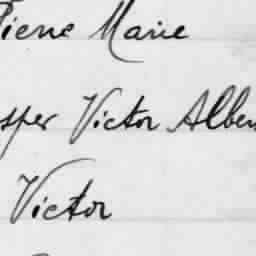 Pierre Marie
sper Victor Alber
Victor